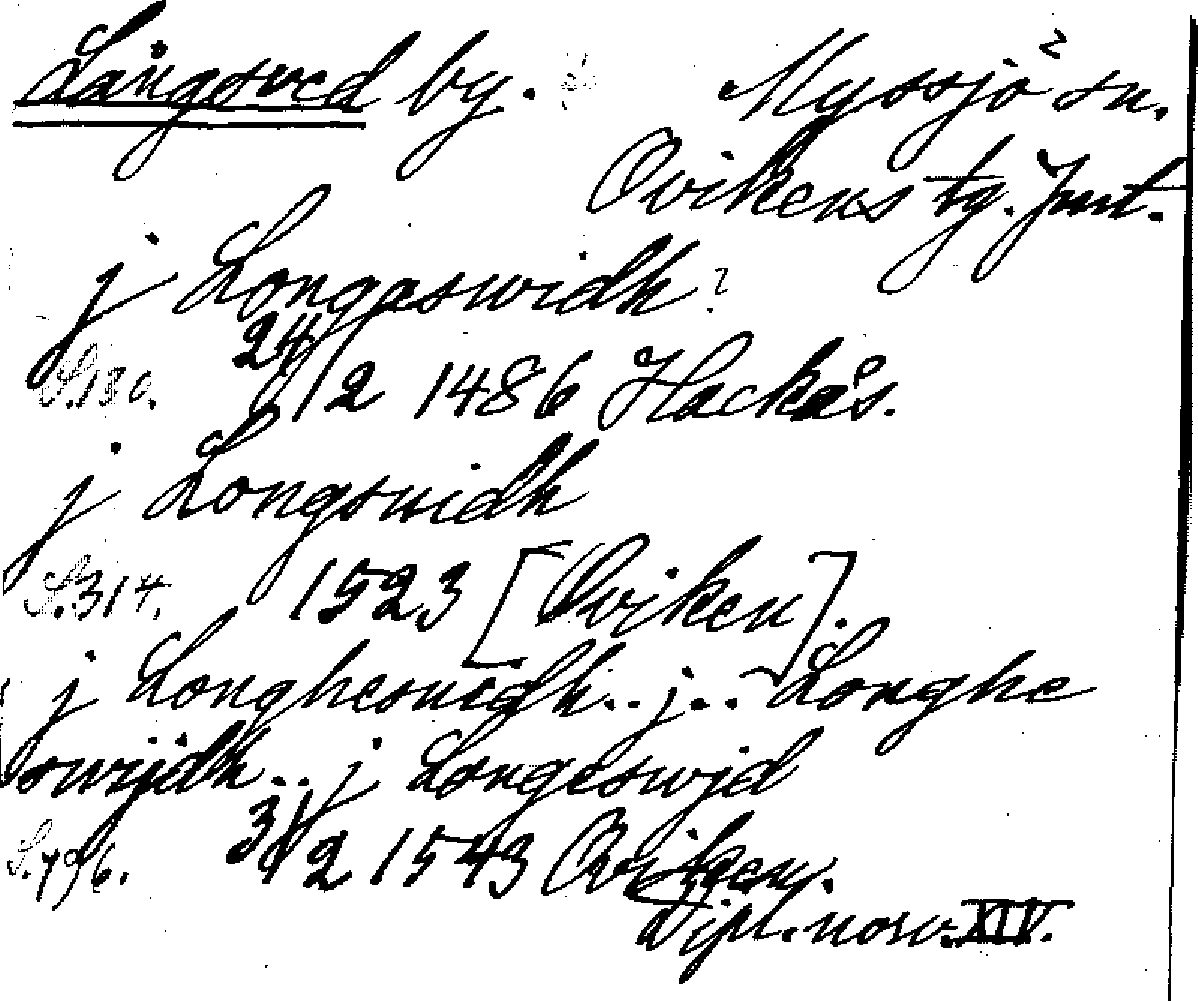 Långsved by. Myssjö sn.
Ovikens tg. Jmt.
j Longaswidh
S.180. 24/2 1486 Hackås.
j Longsuidh
S.314. 1523 [Oviken].
j Longhesuidh.. j.. Longhe
swijdh.. j Longeswjd
31/2 1543 Oviken.
Dipl. norv. XIV.